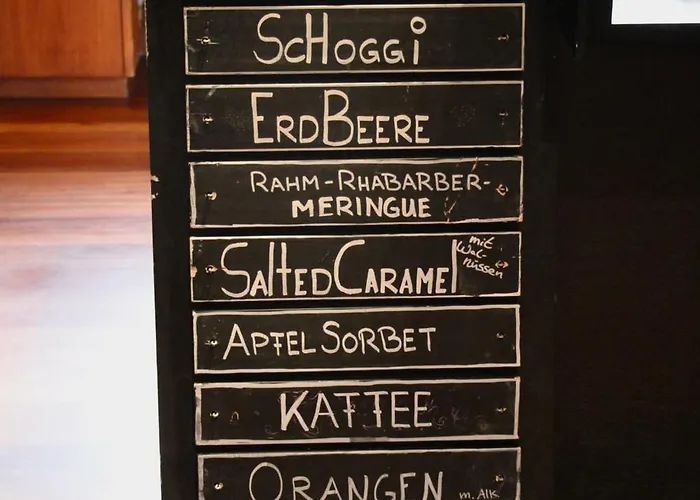 ScHoggi
ERDBEERE
RAHM-RHABARBER-
MERINGUE
SAltEDCARAMEl
mit
Wal-
nüssen
APFEL SORBET
KAFFEE
ORANGEN m. Alk